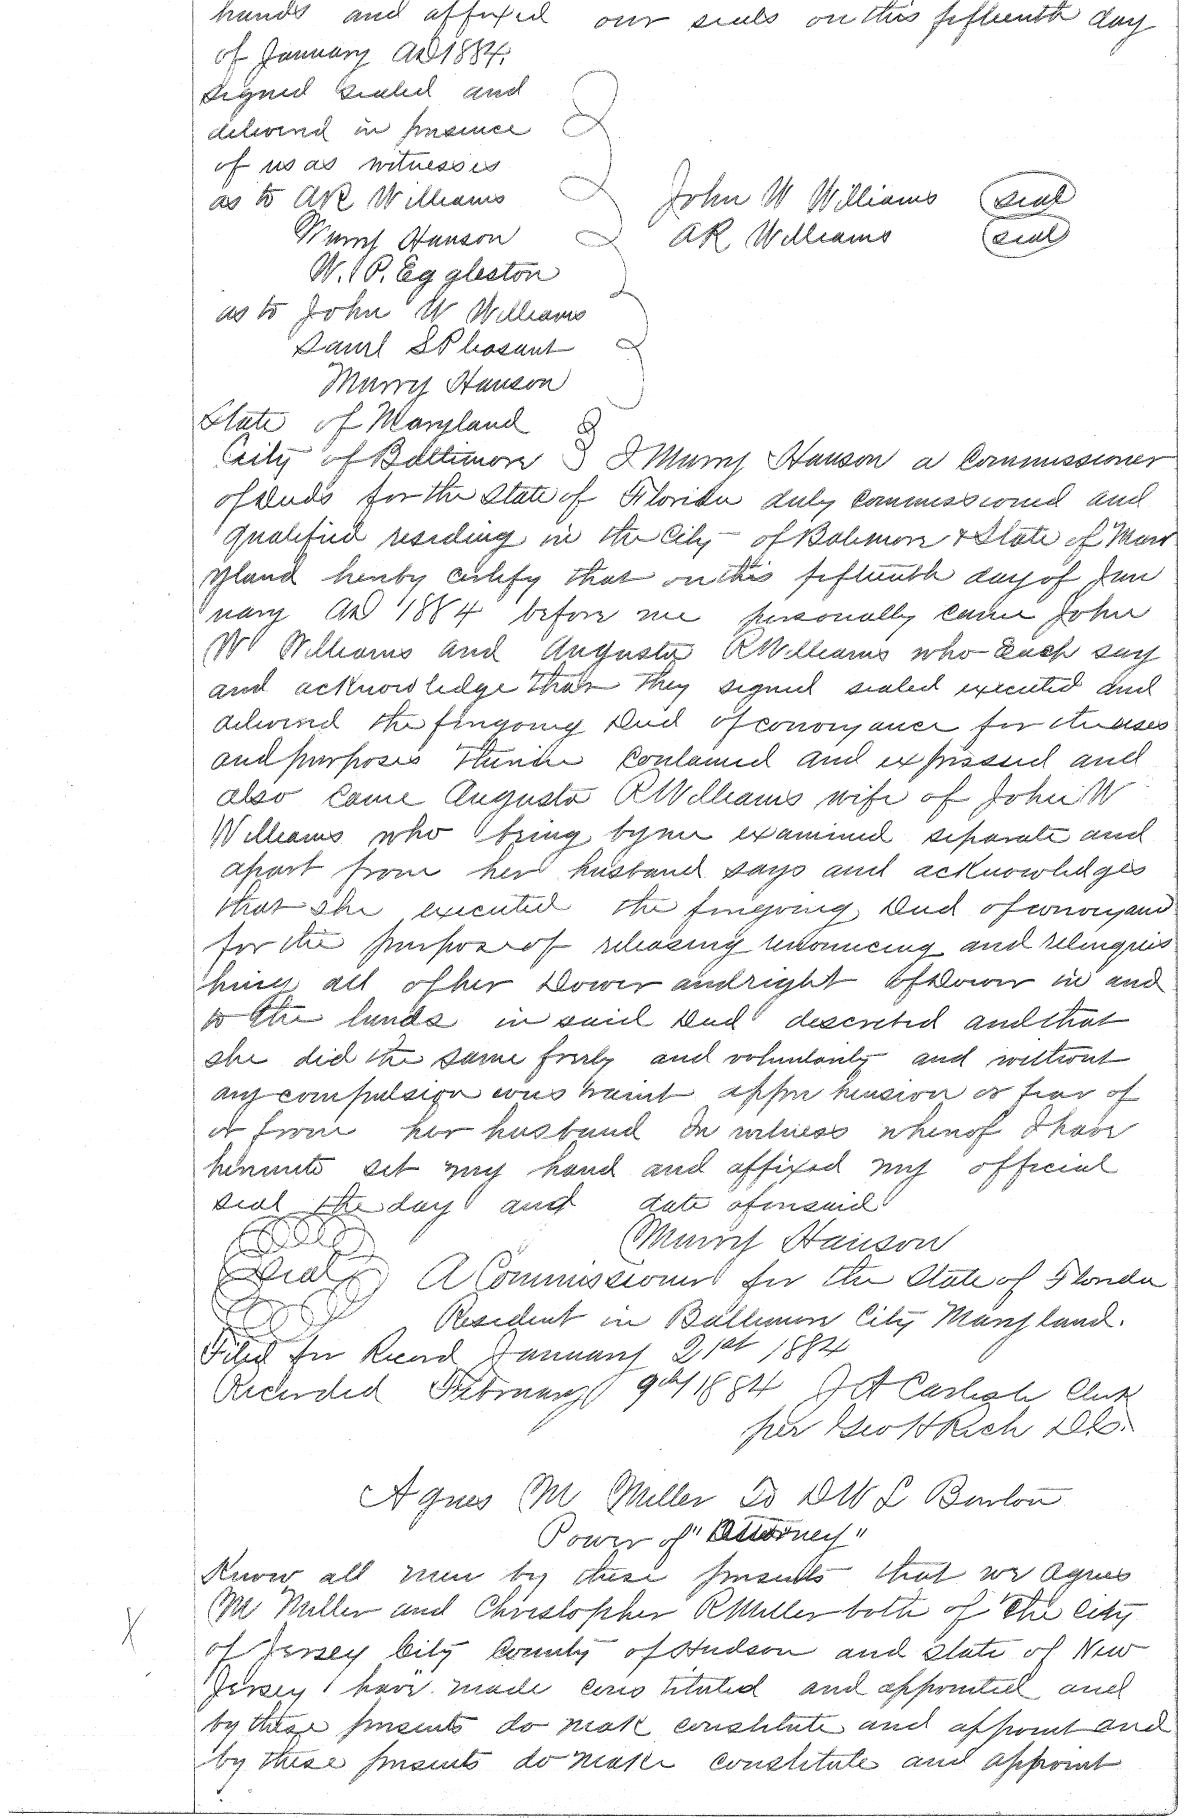 hands and affixed our seals on this fifteenth day
of January AD 1884.
signed sealed and
delivered in presence
of us as witnesses
as to AR Williams
John W Williams (seal)
Murry Hanson
AR Williams (seal)
W. P. Eggleston
as to John W Williams
Saml S Pleasant
Murry Hanson
State of Maryland
City of Baltimore } I Murry Hanson a Commissioner
of Deeds for the State of Florida duly commissioned and
qualified residing in the City of Balimore & State of Mary
yland hereby certify that on this fifteenth day of Jan
nary AD 1884 before me personally came John
W Williams and Augusta R Williams who each say
and acknowledge that they signed sealed executed and
delivered the foregoing Deed of conveyance for the uses
and purposes therein contained and expressed and
also came Augusta R Williams wife of John W
Williams who being by me examined separate and
apart from her husband says and acknowledges
that she executed the foregoing Deed of conveyance
for the purpose of releasing renouncing and relinquis
hing all of her Dower and right of Dower in and
to the lands in said Deed descreted and that
she did the same freely and voluntarily and without
any compulsion constraint apprehension or fear of
or from her husband In witness whereof I have
hereunto set my hand and affixed my official
seal the day and date aforesaid
Murry Hanson
seal A Commissioner for the State of Florida
Resident in Baltimore City Maryland.
Filed for Record January 21st 1884
Recorded February 9th 1884 J A Carlisle Clerk
per Geo H Rich D.C.
Agnes M Miller To D W L Barton
Power of "Attorney"
Know all men by these presents that we Agnes
M Miller and Christopher R Miller both of the City
X
of Jersey City County of Hudson and State of New
Jersey have made constituted and appointed and
by these presents do make constitute and appoint and
by these presents do make constitute and appoint